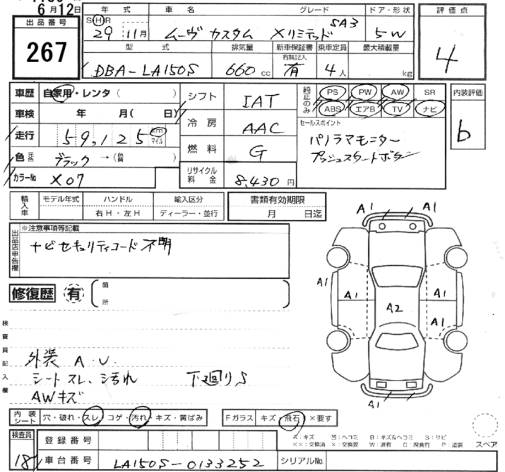 6月12日
出品番号
267
年式
SHR
29年 11月
車名
ムーヴ カスタム Xリミテッド SA3
グレード
ドア・形状
5W
評価点
4
型式
DBA-LA150S
排気量
660 cc
新車保証書
有無記入
有
乗車定員
4人
最大積載量
kg
車歴 自家用・レンタ ( )
車検 年 月( 日)
走行 59,125 km マイル
色 元色 ブラック → (替 )
カラーNo X07
シフト IAT
冷房 AAC
燃料 G
リサイクル料金 8,430円
純正のみ
PS PW AW SR
ABS エアB TV ナビ
セールスポイント
パノラマモニター
プッシュスタートボタン
内装評価
b
輸入車
モデル年式
ハンドル
右H・左H
輸入区分
ディーラー・並行
書類有効期限
月 日迄
出品店申告欄
※注意事項等記載
ナビセキュリティコード不明
修復歴 有
箇所
検査員記入欄
外装 A.U.
シートスレ、汚れ 下廻りS
AWキズ
A1
A1 A1 A2 A1 A1
A1
内装シート 穴・破れ・スレ コゲ・汚れ・キズ・黄ばみ
Fガラス キズ・飛石・×要す
スペア
検査員
登録番号
車台番号 LA150S-0133252
シリアルNo.